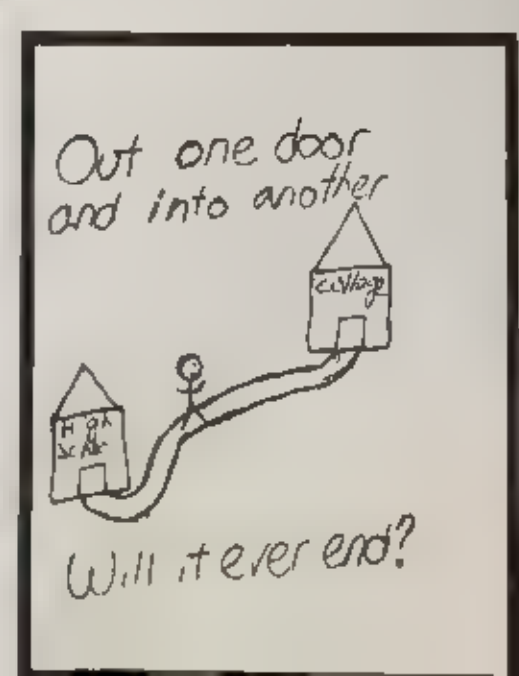 Out one door
and into another
College
High
Will it ever end?